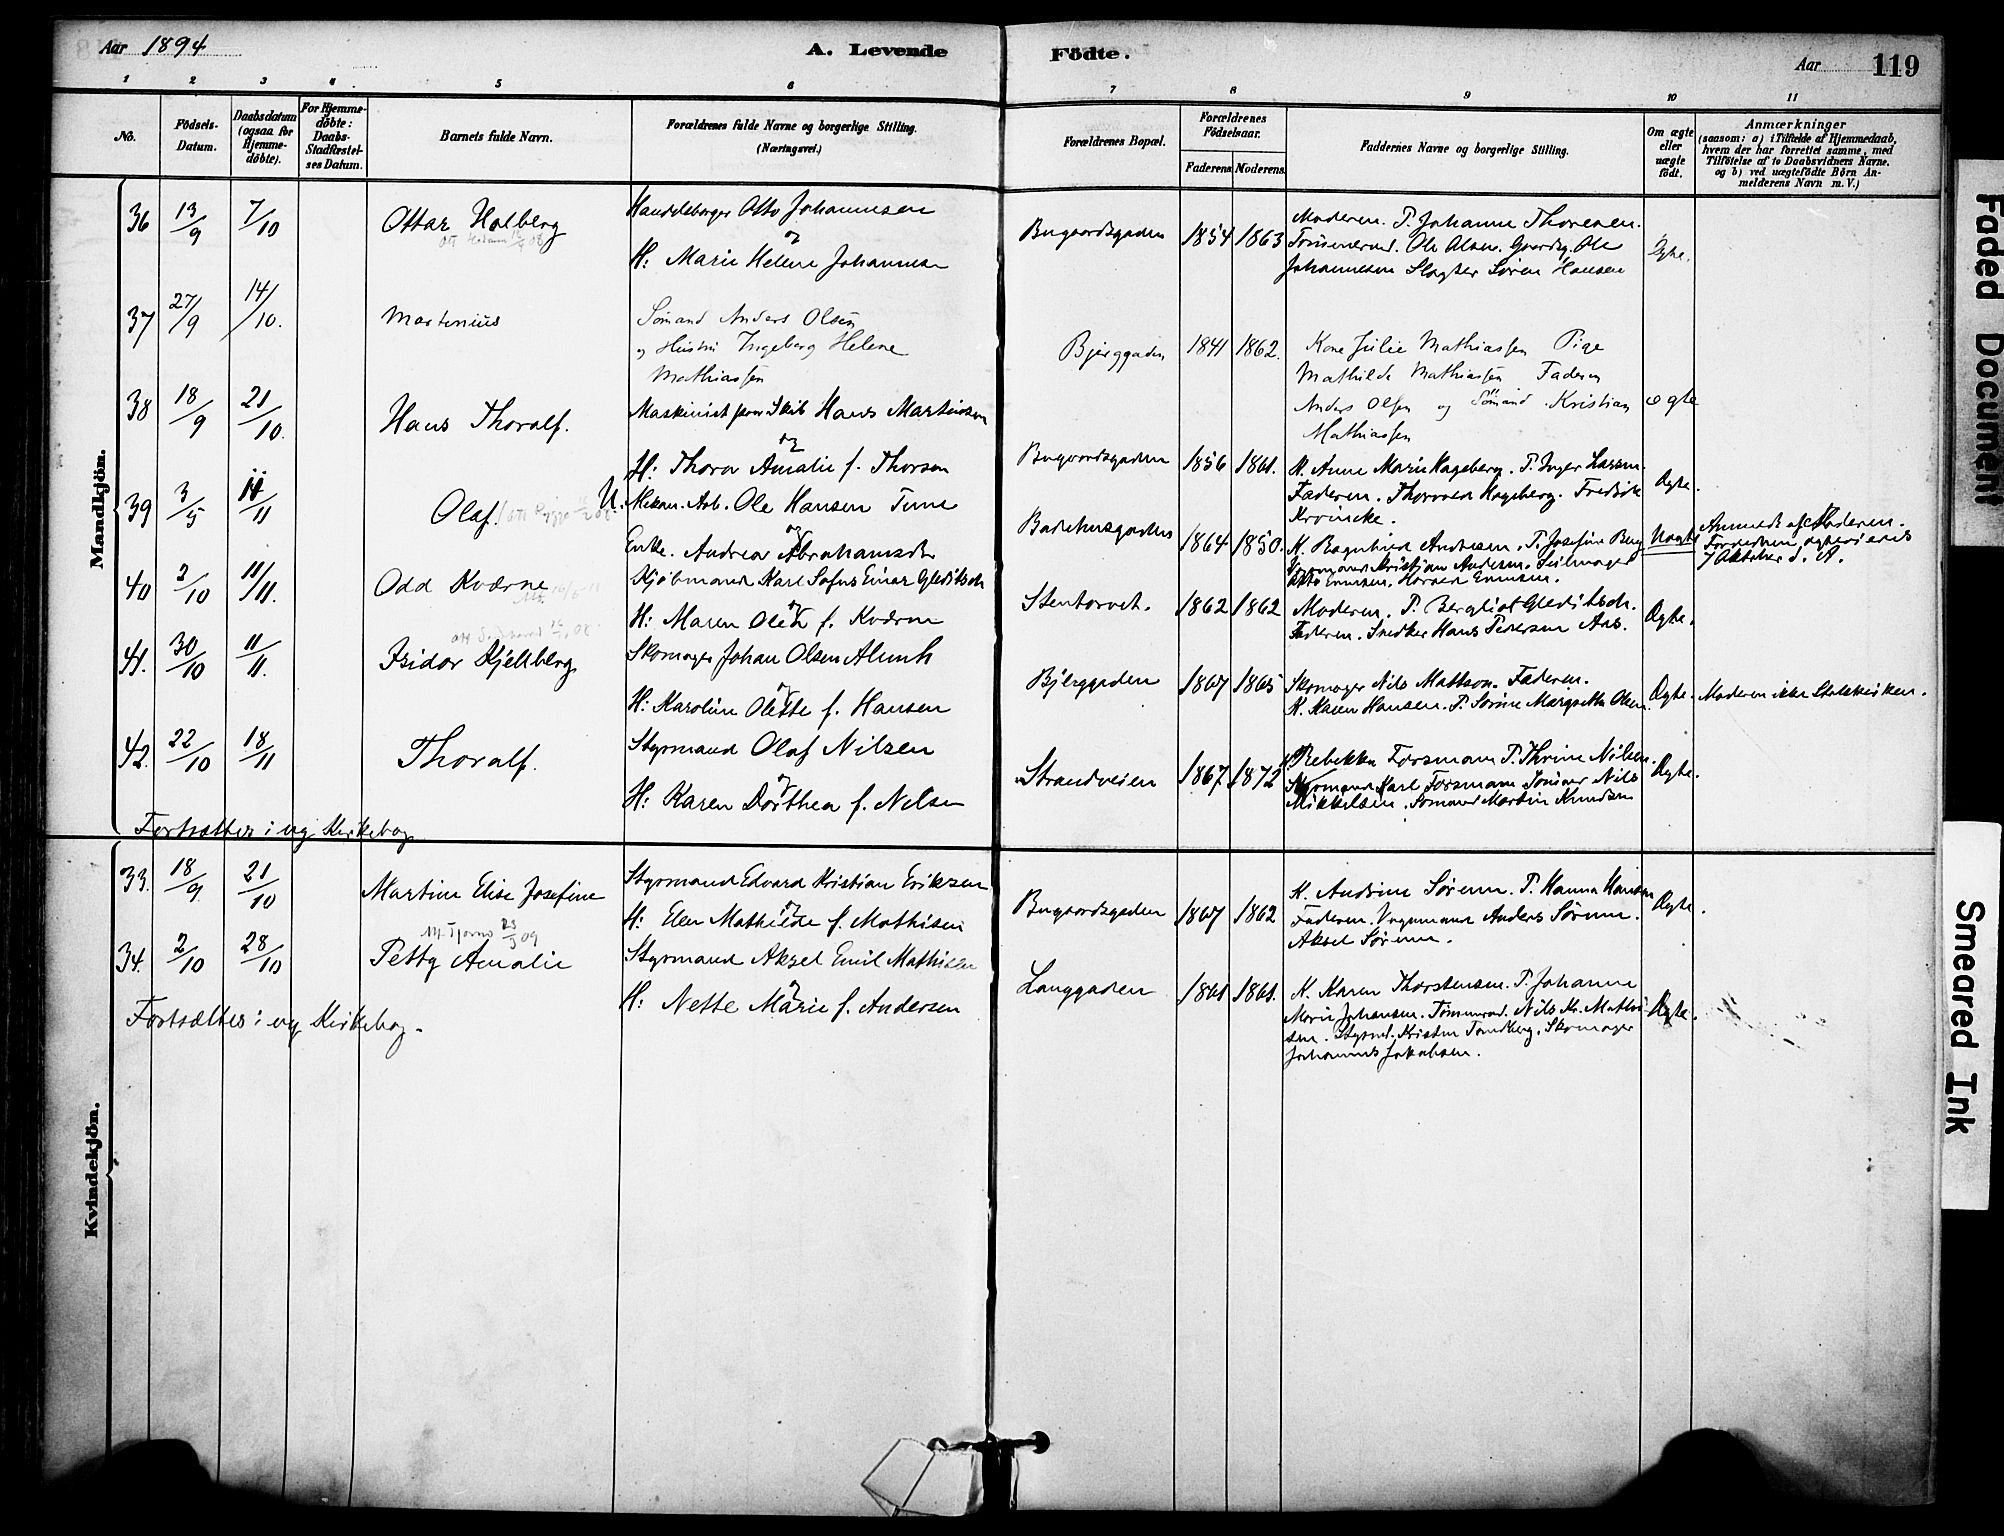 Aar 1894
A. Levende
Födte.
Aar
119
1 2 3 4 5 6 7 8 9 10 11
No.
Födsels-
Datum.
Daabsdatum
(ogsaa for
Hjemme-
döbte).
For Hjemme-
döbte:
Daabs-
Stadfæstel-
ses Datum.
Barnets fulde Navn.
Forældrenes fulde Navne og borgerlige Stilling.
(Næringsvei.)
Forældrenes Bopæl.
Forældrenes
Födselsaar.
Faderens Moderens
Faddernes Navne og borgerlige Stilling.
Om ægte
eller
uægte
födt.
Anmærkninger
(saasom: a) i Tilfælde af Hjemmedaab,
hvem der har forrettet samme, med
Tilföielse af to Daabsvidners Navne.
og b) ved uægtefödte Börn An-
melderens Navn m. V.)
Mandkjön.
36 13/9 7/10 Ottar Holberg
Otto Johannesen
og
H: Marie Helene Johannesen
Bugaardsgaden 1854 1863
Moderen. P. Johanne Thoresen.
Tömmermd. Ole Olsen. Gaardbr. Ole
Johannesen Slagter Sören Hansen
Ægte.
37 27/9 14/10. Martinius
Sömand Anders Olsen
og Hustru Ingeborg Helene
Mathiassen
Bjerggaden 1841 1862.
Kone Julie Mathiassen Pige
Mathilde Mathiassen Faderen
Anders Olsen og Sömand Kristian
Mathiassen
ægte
38 18/9 21/10. Hans Thoralf.
Maskinist paa Skib Hans Martinsen
og
H: Thora Amalie f. Thorsen
Bugaardsgaden 1856 1861.
K. Anne Marie Hageberg. P. Inger Larsen.
Faderen. Thorvald Hageberg. Fredrik
Kroincke.
Ægte.
39 3/5 11/11 Olaf. U.
Mekan. Arb. Ole Hansen Tune
og
Enke. Andrea Abrahamsdtr
Badehusgaden 1864 1850.
K. Ragnhild Andersen. P. Josefine Berg
Kristian Andersen. Seilmager
Otto Evensen.
Uægte
Anmeldt af Faderen.
7 Oktober d. A.
40 2/10 11/11. Odd Kværne
Kjöbmand Karl Sofus Einar Gleditsch
og
H: Maren Olea f. Kværne
Stentorvet. 1862 1862
Moderen. P. Bergliot Gleditsch.
Faderen. Snedker Hans Pedersen Aas.
Ægte.
41. 30/10 11/11. Isidor Kjellberg
Skomager Johan Olsen Alunk
og
H: Karoline Olette f. Hansen
Bjerggaden 1867 1865
Skomager Nils Mattson. Faderen.
K. Karen Hansen. P. Sörine Margrethe Olsen
Ægte. Moderen ikke Statskirken.
42. 22/10 18/11 Thoralf.
Styrmand Olaf Nilsen
og
H: Karen Dorthea f. Nilsen
Strandveien 1867 1872
Rebekka Forsmann P. Thrine Nilsen.
Styrmand Karl Forsmann Nils
Mikkelsen. Sömand Martin Knudsen
Ægte.
Fortsættes i ny Kirkebog.
Kvindekjön.
33. 18/9. 21/10 Martine Elise Josefine
Styrmand Edvard Kristian Eriksen
og
H: Elen Mathilde f. Mathisen
Bugaardsgaden 1867 1862
K. Andrine Sörensen. P. Hanna Hansen
Faderen. Vognmand Anders Sörensen.
Aksel Sörensen.
Ægte.
34. 2/10 28/10 Petty Amalie
Styrmand Aksel Emil Mathisen
og
H: Nette Marie f. Andersen
Langgaden 1861 1861.
K. Karen Thorstensen. P. Johanne
Marie Johansen. Tömmermd. Nils Kr. Mathi-
sen. Styrmd. Kristen Tandberg. Skomager
Johannes Jakobsen.
Ægte.
Fortsættes i ny Kirkebog.
Faded Document
Smeared Ink